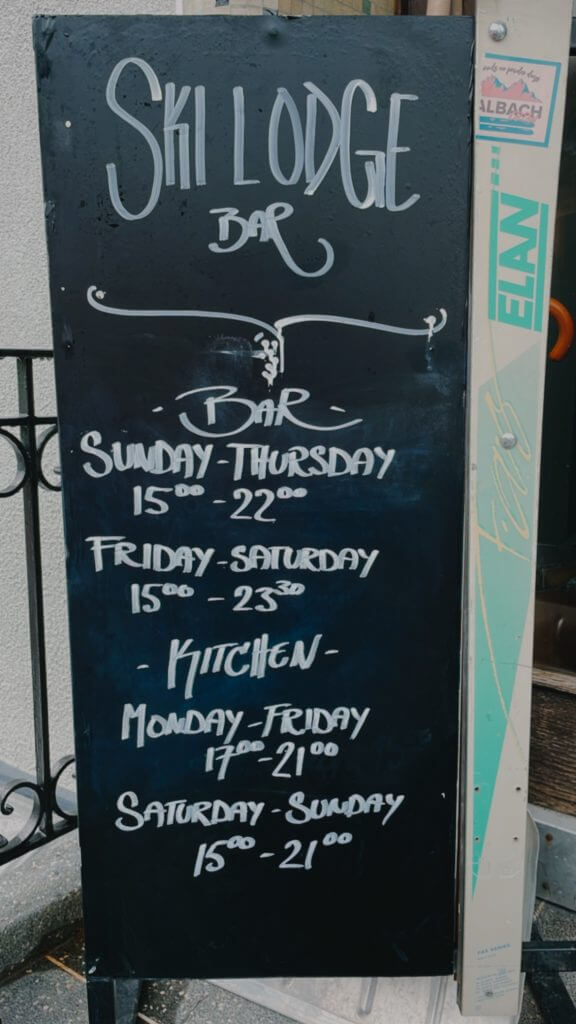 SKI LODGE
BAR
- BAR -
SUNDAY - THURSDAY
15⁰⁰ - 22⁰⁰
FRIDAY - SATURDAY
15⁰⁰ - 23³⁰
- KITCHEN -
MONDAY - FRIDAY
17⁰⁰ - 21⁰⁰
SATURDAY - SUNDAY
15⁰⁰ - 21⁰⁰
ALBACH
ELAN